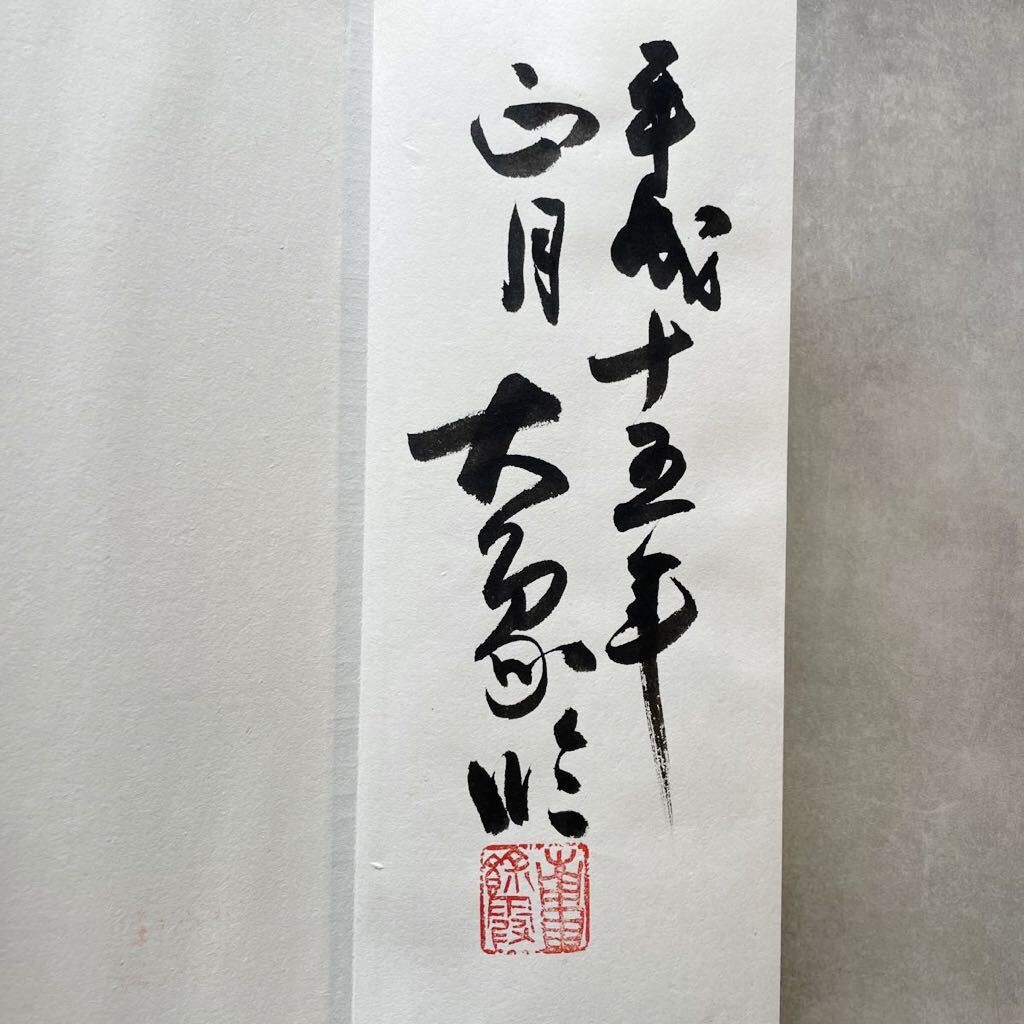 平成十五年
正月 大象臨